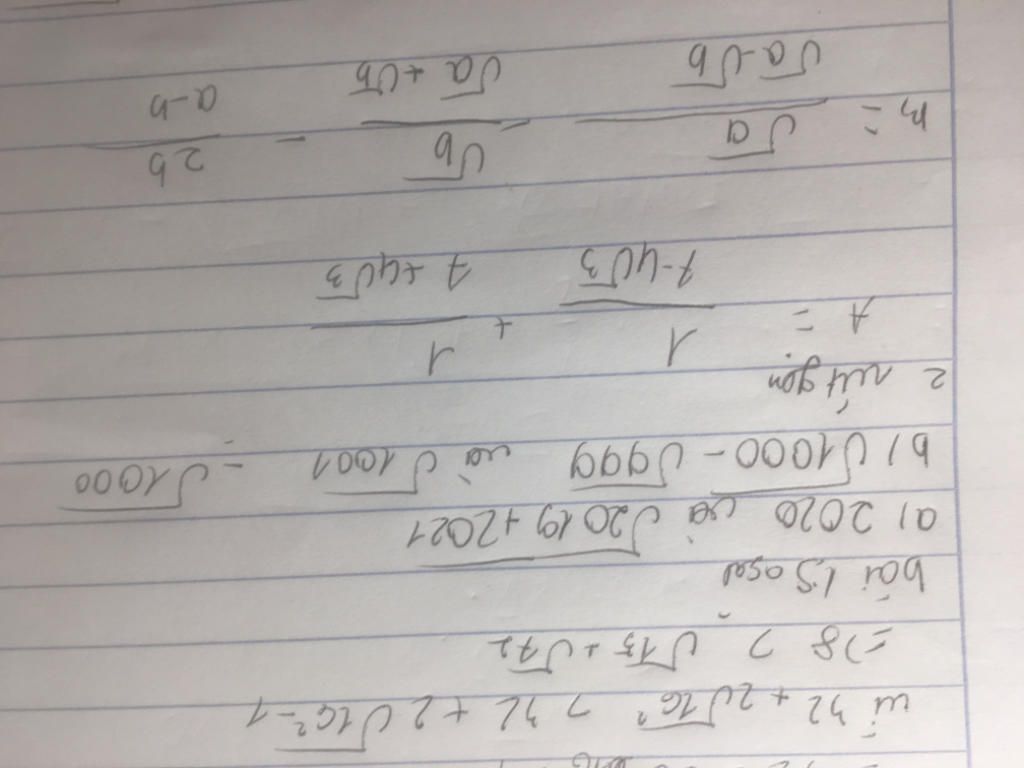 vì 32 + 2√16² > 32 + 2√16²-1
=> 8 > √15 + √17
bài 1 So sánh
a) 2020 và √2019+2021
b) √1000 - √999 và √1001 - √1000
2 rút gọn
A = 1/(7-4√3) + 1/(7+4√3)
= √a/(√a-√b) - √b/(√a+√b) - 2b/(a-b)